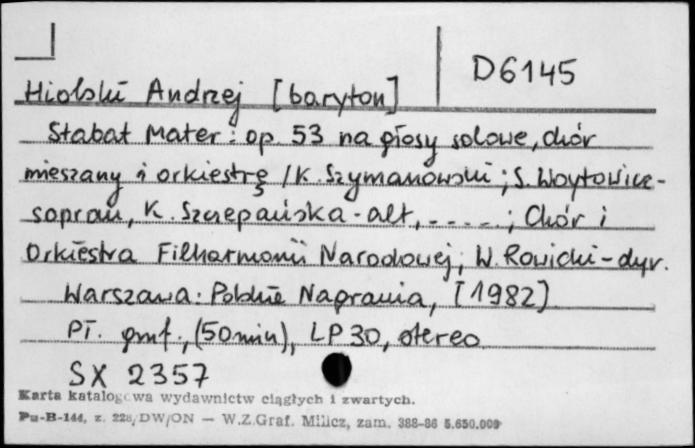 D6145
Hiolski Andrzej [baryton]
Stabat Mater: op. 53 na głosy solowe, chór
mieszany i orkiestrę / K. Szymanowski ; S. Woytowicz-
sopran, K. Szczepańska - alt, - - - - - ; Chór i
Orkiestra Filharmonii Narodowej ; W. Rowicki - dyr.
Warszawa : Polskie Nagrania, [1982]
Pł. gmf., (50 min), LP 30, stereo
SX 2357
Karta katalogowa wydawnictw ciągłych i zwartych.
Pu-B-144, z. 228/DW/ON — W.Z.Graf. Milicz, zam. 388-86 5.650.000